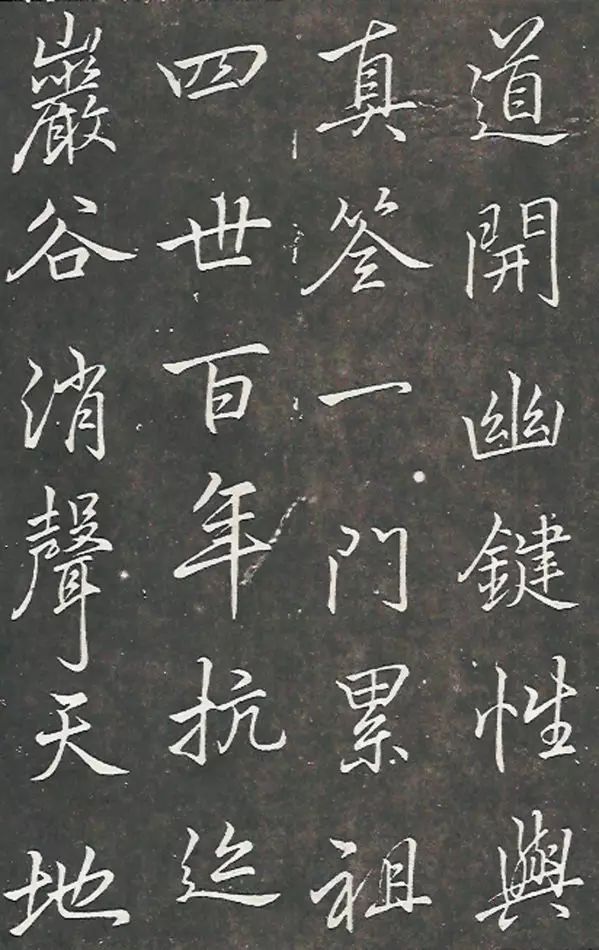 道開幽鍵性與
真筌一門累祖
四世百年抗迹
巖谷消聲天地